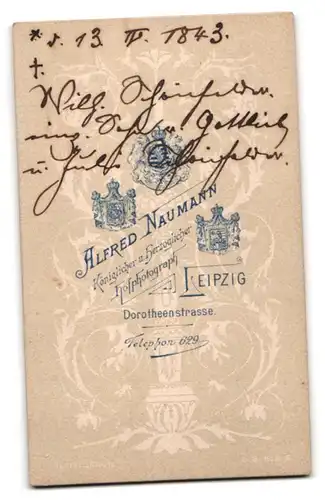 * d. 13. IV. 1843.
†.
Wilh. Schönfelder.
Gottlieb
u. Schönfelder.
ALFRED NAUMANN
Königlicher u. Herzoglicher
Hofphotograph
LEIPZIG
Dorotheenstrasse.
Telephon 629.